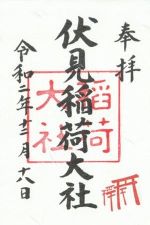 奉拝
伏見稲荷大社
稲荷
大社
令和二年十二月十八日